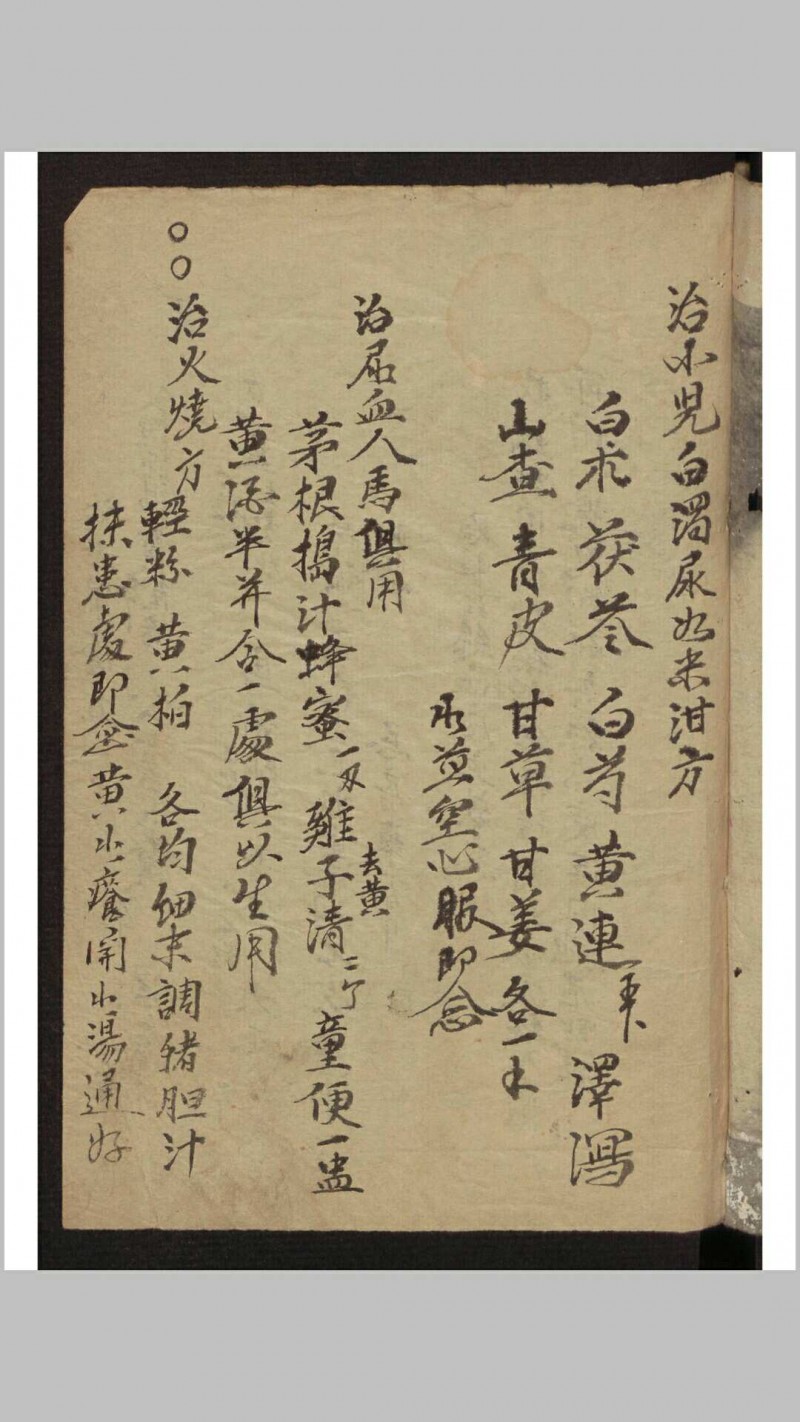 治小児白濁尿如米泔方
白朮 茯苓 白芍 黄連 澤瀉
山查 青皮 甘草 甘姜 各一
水煎空心服即愈
治尿血人馬俱用
茅根搗汁蜂蜜一 雞子清去黄 童便一盅
黄酒半并合一處俱以生用
○○治火燒方
輕粉 黄柏 各均細末調豬胆汁
抹患處即 黄水瘡開水湯通好